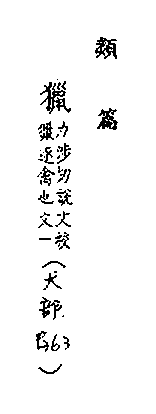 類篇
獵
力涉切說文校
獵逐禽也文一
(犬部 P363)